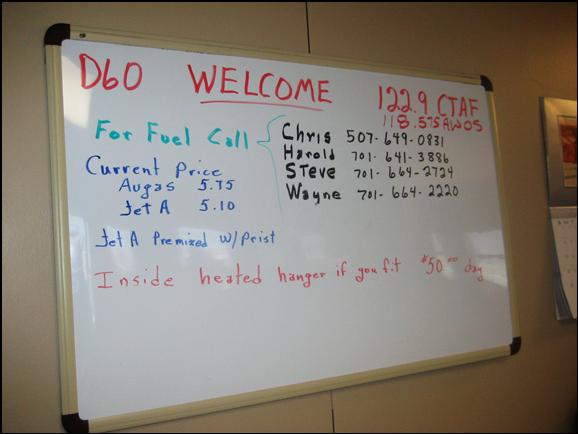 D60 WELCOME 122.9 CTAF
118.575 AWOS
For Fuel Call
Chris 507-649-0831
Harold 701-641-3886
Steve 701-664-2724
Wayne 701-664-2220
Current Price
Avgas 5.75
Jet A 5.10
Jet A Premixed w/ Prist
Inside heated hanger if you fit $50.00 day